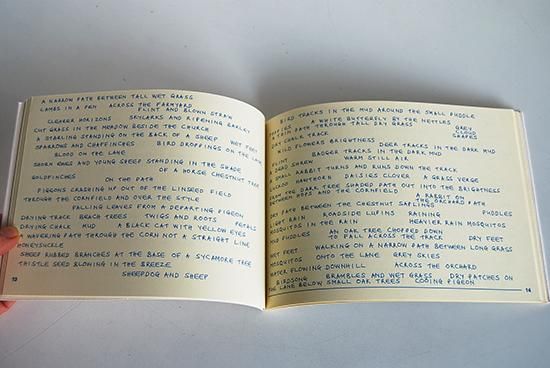 A NARROW PATH BETWEEN TALL WET GRASS
LAMBS IN A PEN ACROSS THE FARMYARD
FLINT AND BLOWN STRAW
CLEARER HORIZONS SKYLARKS AND RIPENING BARLEY
CUT GRASS IN THE MEADOW BESIDE THE CHURCH
A STARLING STANDING ON THE BACK OF A SHEEP WET FEET
SPARROWS AND CHAFFINCHES BIRD DROPPINGS ON THE LANE
BLOOD ON THE LANE
SHORN EWES AND YOUNG SHEEP STANDING IN THE SHADE
OF A HORSE CHESTNUT TREE
GOLDFINCHES ON THE PATH
PIGEONS CRASHING UP OUT OF THE LINSEED FIELD
THROUGH THE CORNFIELD AND OVER THE STYLE
FALLING LEAVES FROM A DEPARTING PIGEON
DRYING TRACK BEECH TREES TWIGS AND ROOTS PETALS
DRYING CHALK MUD A BLACK CAT WITH YELLOW EYES
A WAVERING PATH THROUGH THE CORN NOT A STRAIGHT LINE
HONEYSUCKLE
SHEEP RUBBED BRANCHES AT THE BASE OF A SYCAMORE TREE
THISTLE SEED BLOWING IN THE BREEZE
SHEEPDOG AND SHEEP
13
BIRD TRACKS IN THE MUD AROUND THE SMALL PUDDLE
POPPIES A WHITE BUTTERFLY BY THE NETTLES
A PATH THROUGH TALL DRY GRASS GREY
DRY CHALK TRACK CLOUD
SHAPES
WILD FLOWERS BRIGHTNESS DEER TRACKS IN THE DARK MUD
BADGER TRACKS IN THE DARK MUD
A DEAD SHREW WARM STILL AIR
A SMALL RABBIT TURNS AND RUNS DOWN THE TRACK
HAWTHORN DAISIES CLOVER A GRASS VERGE
THE DARK TREE SHADED PATH OUT INTO THE BRIGHTNESS
HOOPS AND THE CORNFIELD A RABBIT ON
THE ORCHARD PATH
DRY PATH BETWEEN THE CHESTNUT SAPLINGS
LIGHT RAIN ROADSIDE LUPINS RAINING PUDDLES
MOSQUITOS IN THE RAIN HEAVIER RAIN MOSQUITOS
MUD PUDDLES AN OAK TREE CHOPPED DOWN
TO FALL ACROSS THE TRACK DRY FEET
WET FEET WALKING ON A NARROW PATH BETWEEN LONG GRASS
MOSQUITOS ONTO THE LANE GREY SKIES
WATER FLOWING DOWNHILL ACROSS THE ORCHARD
BIRDSONG BRAMBLES AND WET GRASS DRY PATCHES ON
THE LANE BELOW SMALL OAK TREES COOING PIGEON
14